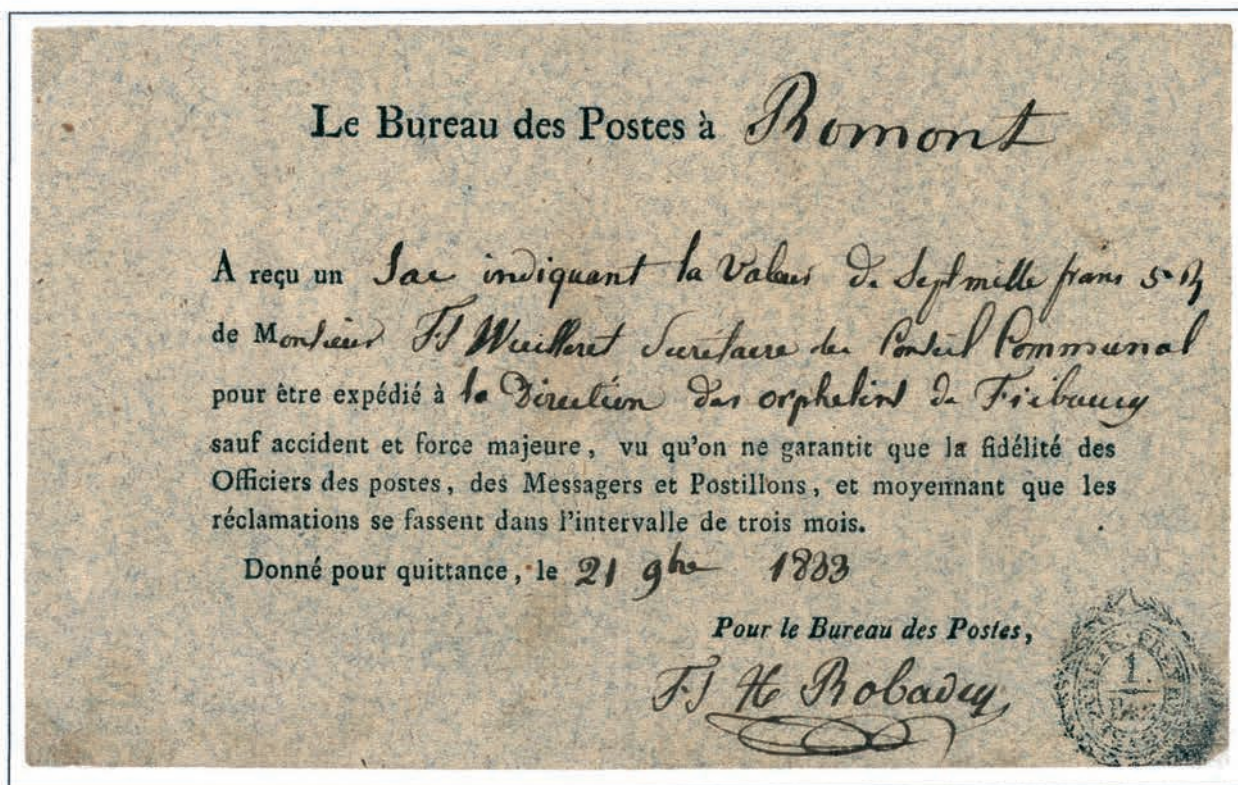 Le Bureau des Postes à Romont
A reçu un Sac indiquant la Valeur de Sept mille francs 5
de Monsieur Fs Wuilleret Secrétaire du Conseil Communal
pour être expédié à la Direction des orphelins de Fribourg
sauf accident et force majeure, vu qu'on ne garantit que la fidélité des
Officiers des postes, des Messagers et Postillons, et moyennant que les
réclamations se fassent dans l'intervalle de trois mois.
Donné pour quittance, le 21 9bre 1833
Pour le Bureau des Postes,
Fs H Robadey
1.